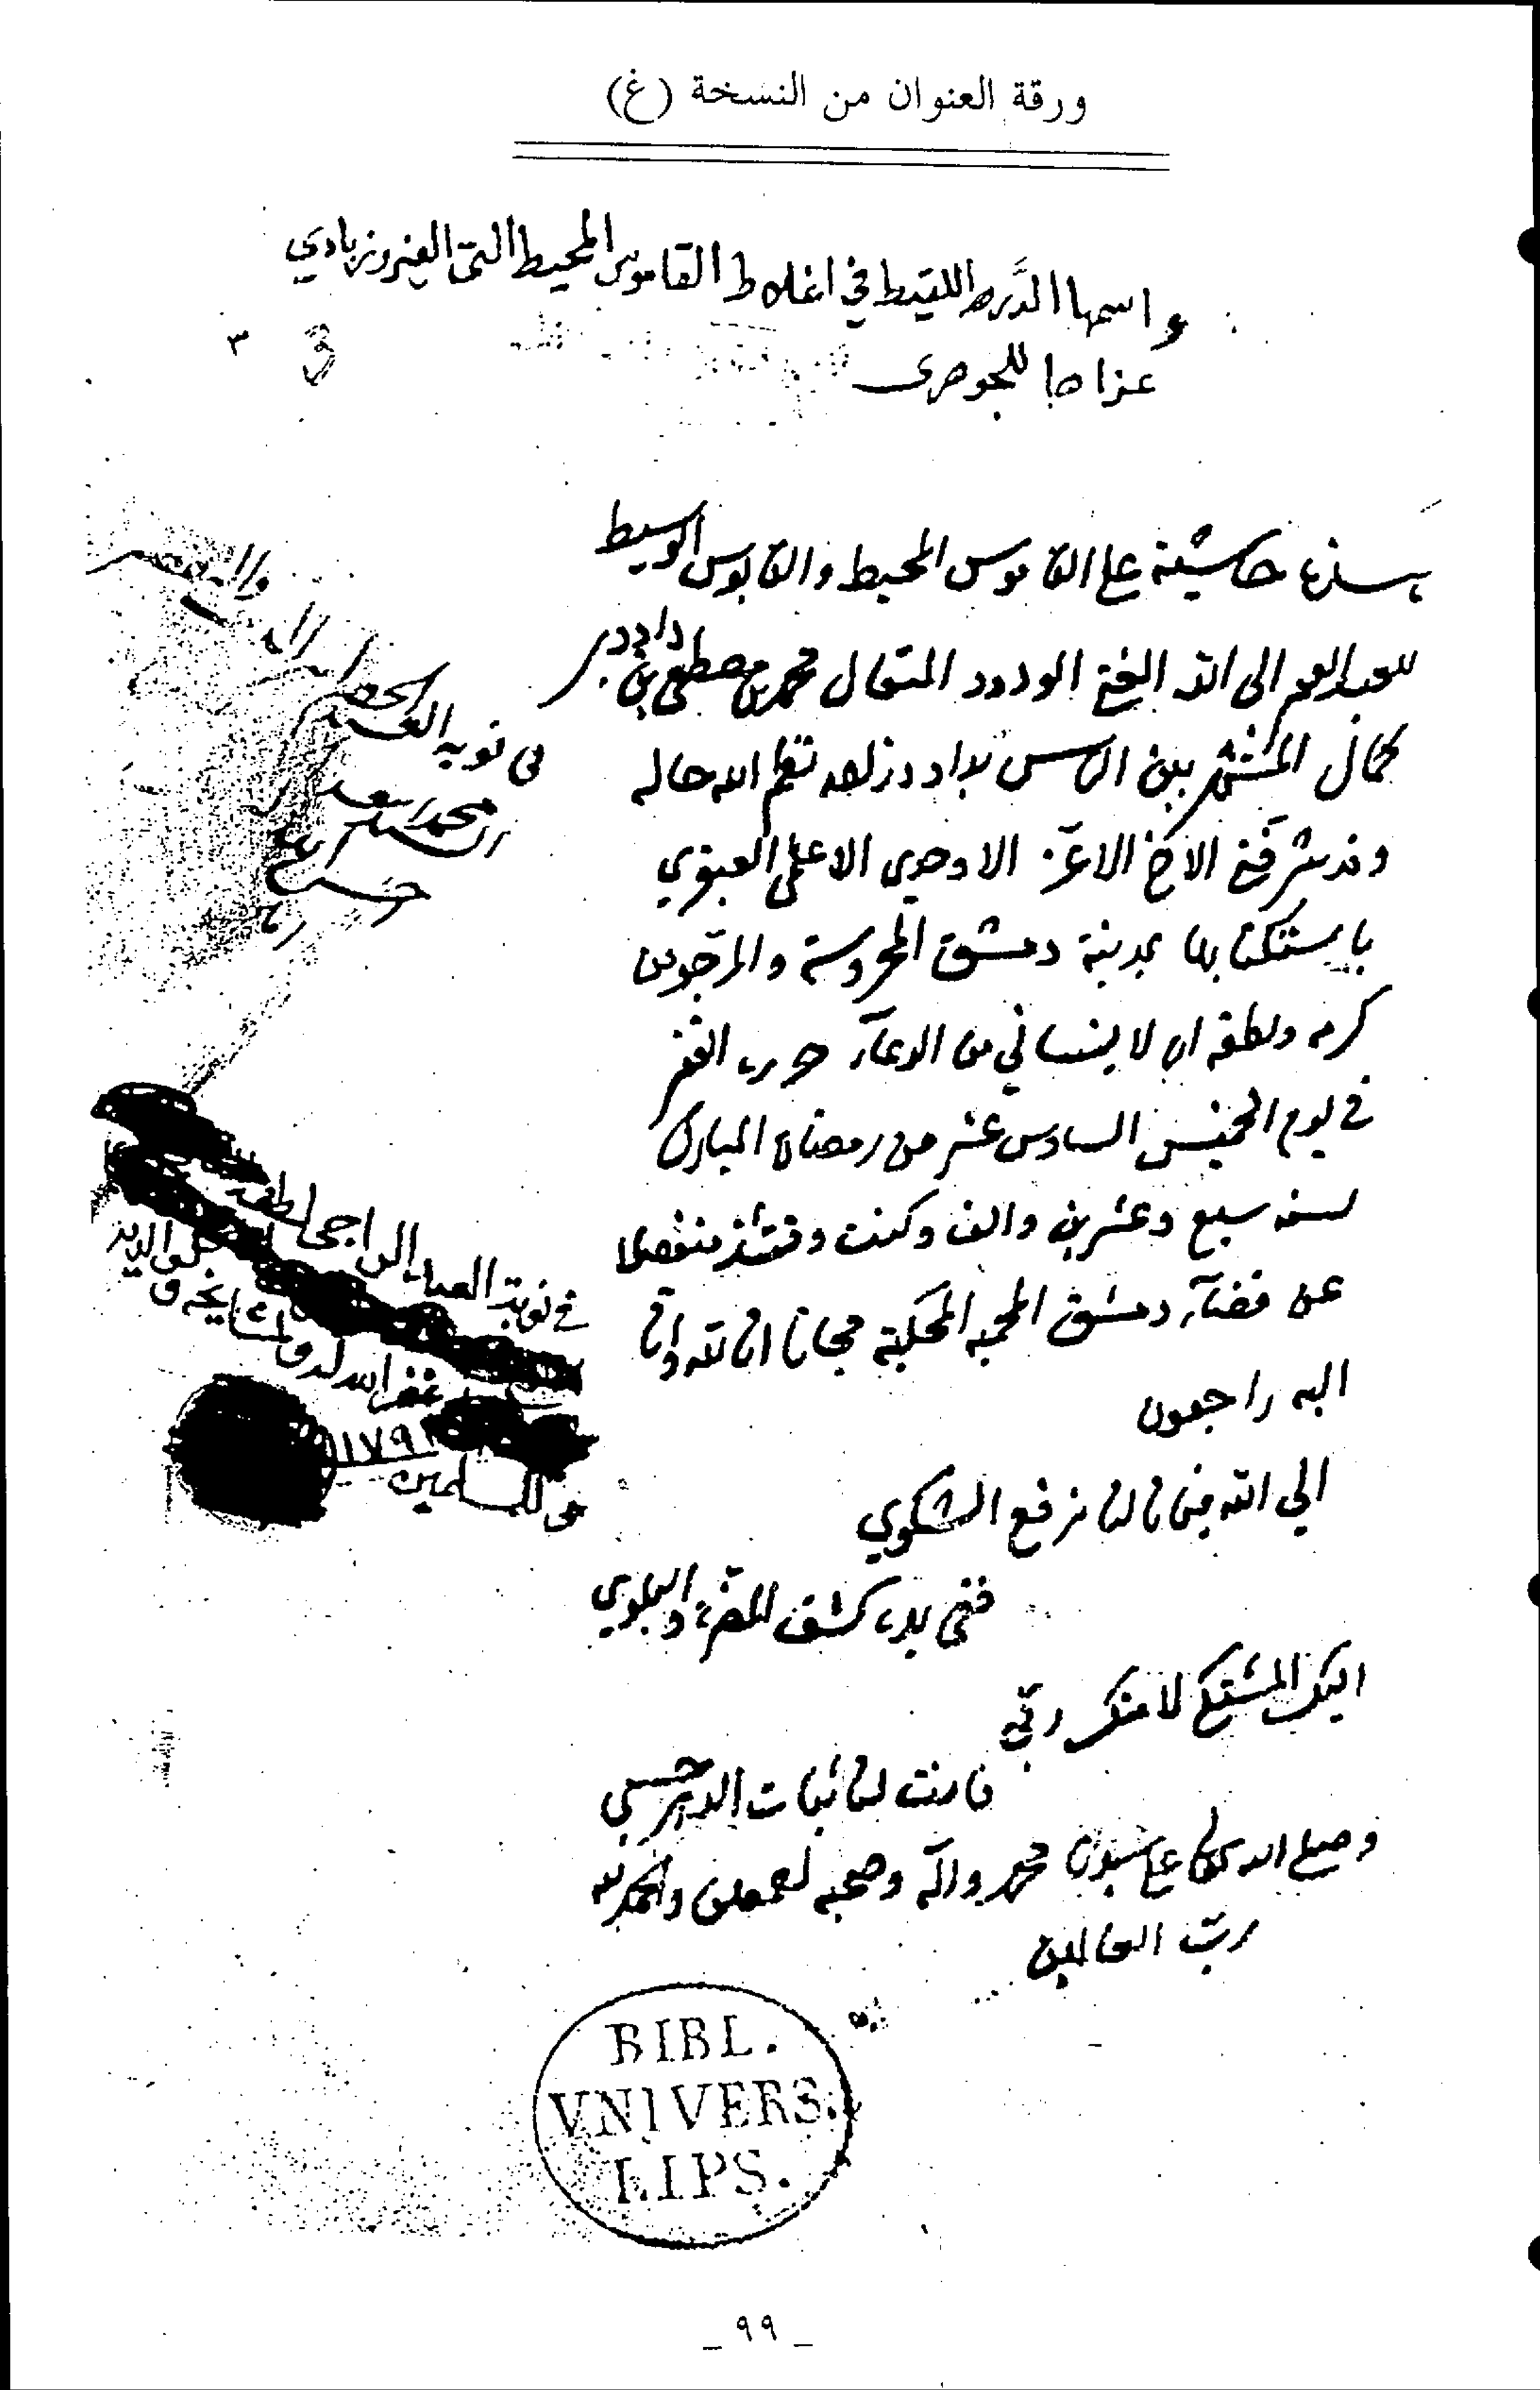 ورقة العنوان من النسخة (غ)
واسمها الدر اللقيط في اغلاط القاموس المحيط التي الفيروزبادي
عزاها للجوهرى
3 ٣
هذه حاشية على القاموس المحيط والقابوس الوسيط
للعبد الفقير الى الله الغني الودود المتعال محمد بن مصطفى بن داود بن
كمال المشتهر بين الناس بداود زاده نظم الله حاله
وقد شرفني الاخ الاعز الاوحدي الاعلمى العبقري
باستكتابها بمدينة دمشق المحروسة والمرجو من
كرمه ولطفه ان لا ينساني من الدعآء حرره الفقير
في يوم الخميس السادس عشر من رمضان المبارك
لسنه سبع وعشرين والف وكنت وقتئذ منفصلا
عن قضآء دمشق المحميه المحكية مجانا انا لله وانا
اليه راجعون
الي الله فيما نالنا نرفع الشكوي
ففي يده كشف المضرة والبلوي
اليك المشتكى لا منك ربي
فانت لنائبات الدهر حسبي
وصلى الله تعالى على سيدنا محمد واله وصحبه اجمعين والحمد لله
رب العالمين
في نوبة
محمد اسعد
في نوبة العبد الراجى لطف
غفر الله له و لمشايخه و
١١٧٩
للمسلمين
BIBL.
VNIVERS.
LIPS.
_ ٩٩ _